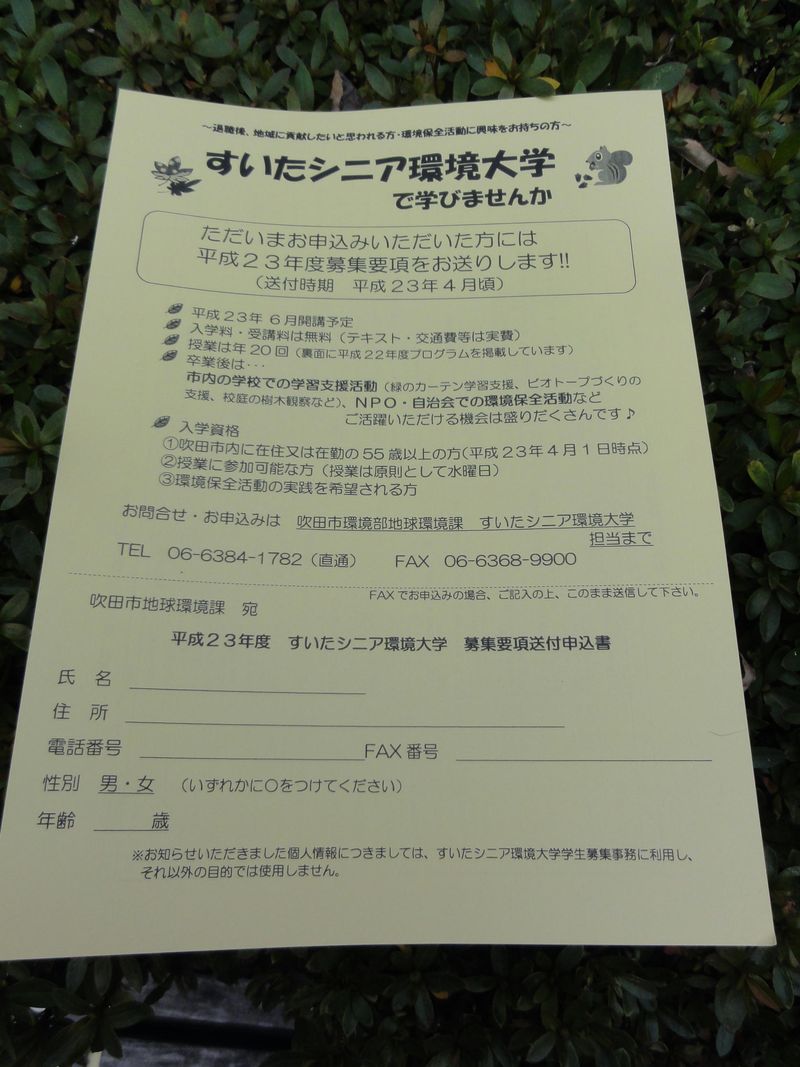 ～退職後、地域に貢献したいと思われる方・環境保全活動に興味をお持ちの方～
すいたシニア環境大学
で学びませんか
ただいまお申込みいただいた方には
平成２３年度募集要項をお送りします!!
（送付時期　平成２３年４月頃）
平成２３年 ６月開講予定
入学料・受講料は無料（テキスト・交通費等は実費）
授業は年２０回（裏面に平成２２年度プログラムを掲載しています）
卒業後は・・・
市内の学校での学習支援活動（緑のカーテン学習支援、ビオトープづくりの
支援、校庭の樹木観察など）、ＮＰＯ・自治会での環境保全活動など
ご活躍いただける機会は盛りだくさんです♪
入学資格
①吹田市内に在住又は在勤の５５歳以上の方（平成２３年４月１日時点）
②授業に参加可能な方（授業は原則として水曜日）
③環境保全活動の実践を希望される方
お問合せ・お申込みは　吹田市環境部地球環境課　すいたシニア環境大学
担当まで
TEL　06-6384-1782（直通）　　FAX　06-6368-9900
FAXでお申込みの場合、ご記入の上、このまま送信して下さい。
吹田市地球環境課　宛
平成２３年度　すいたシニア環境大学　募集要項送付申込書
氏　名
住　所
電話番号　FAX番号
性別　男・女　（いずれかに○をつけてください）
年齢　　　歳
※お知らせいただきました個人情報につきましては、すいたシニア環境大学学生募集事務に利用し、
それ以外の目的では使用しません。